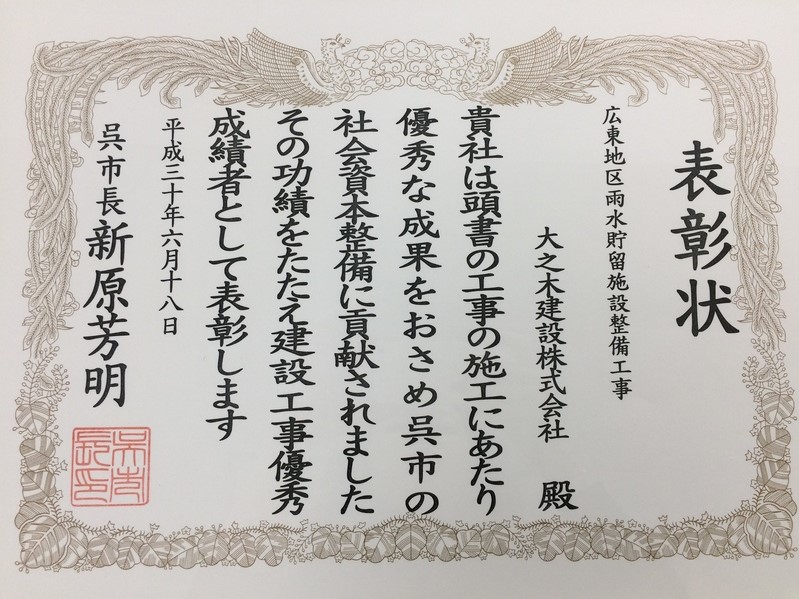 表彰状
広東地区雨水貯留施設整備工事
大之木建設株式会社 殿
貴社は頭書の工事の施工にあたり
優秀な成果をおさめ呉市の
社会資本整備に貢献されました
その功績をたたえ建設工事優秀
成績者として表彰します
平成三十年六月十八日
呉市長 新原芳明
呉市
長印